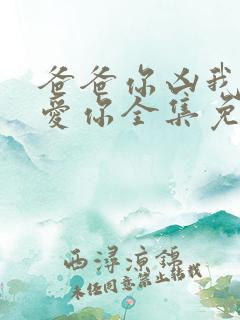 爸爸你凶我
爱你全集免
西浔凉锦
未经同意禁止转载